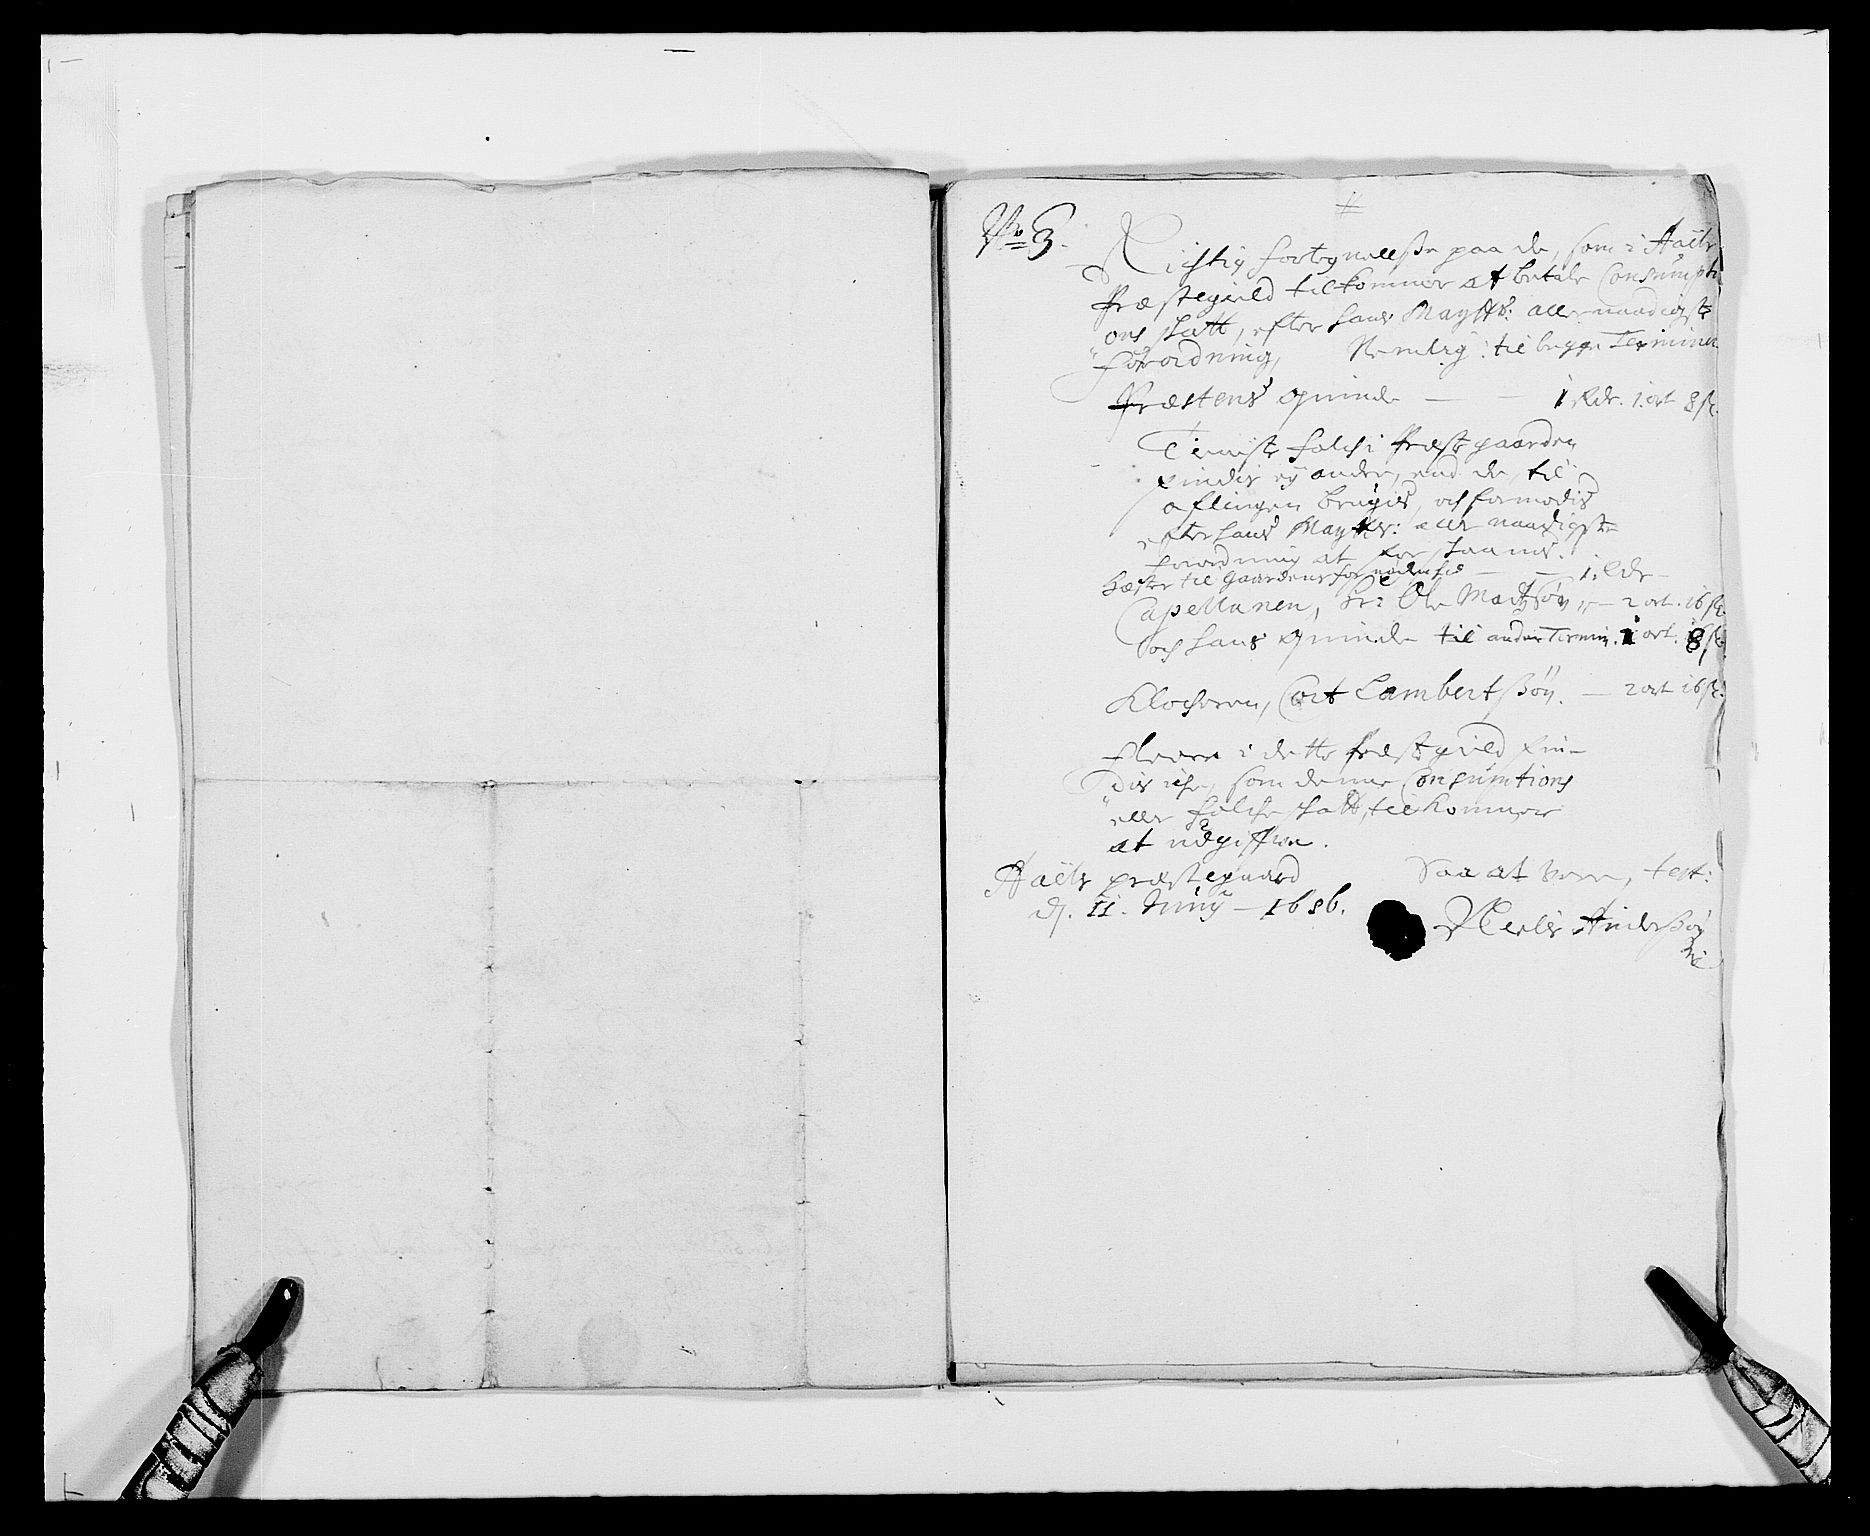 No 3.
Richtig fortegnellse paa de, som i Aals
Præstegield tilkommer at betale Consumpti
ons skatt, efter hans Maytts: aller naadigste
forordning, Nemlig: til begge Terminer
Præstens quinde — — 1 Rdr. 1. ort 8 s.
Tieniste folch i Præstegaarden
findis ey andre, end de, til
aflingen brugis, och formodis
efter hans Maytts: aller naadigste
forordning at for skaanis.
Hæster til gaardens fornødenhed — — 1. Rdr —
Capellanen, Hr: Ole Madtzøn — 2 ort. 16 s.
och hans quinde til anden Termin. 1 ort. 8 s.
Klocheren, Cort Lambertsøn. — 2 ort 16 s.
Fleere i dette Præstegield fin-
dis iche, som denne Consumtions
eller folche skatt, tilkommer
at udgiffwe.
Aals præstegaard Saa at were, test:
dj. 11. Junij — 1686.
Andersøn